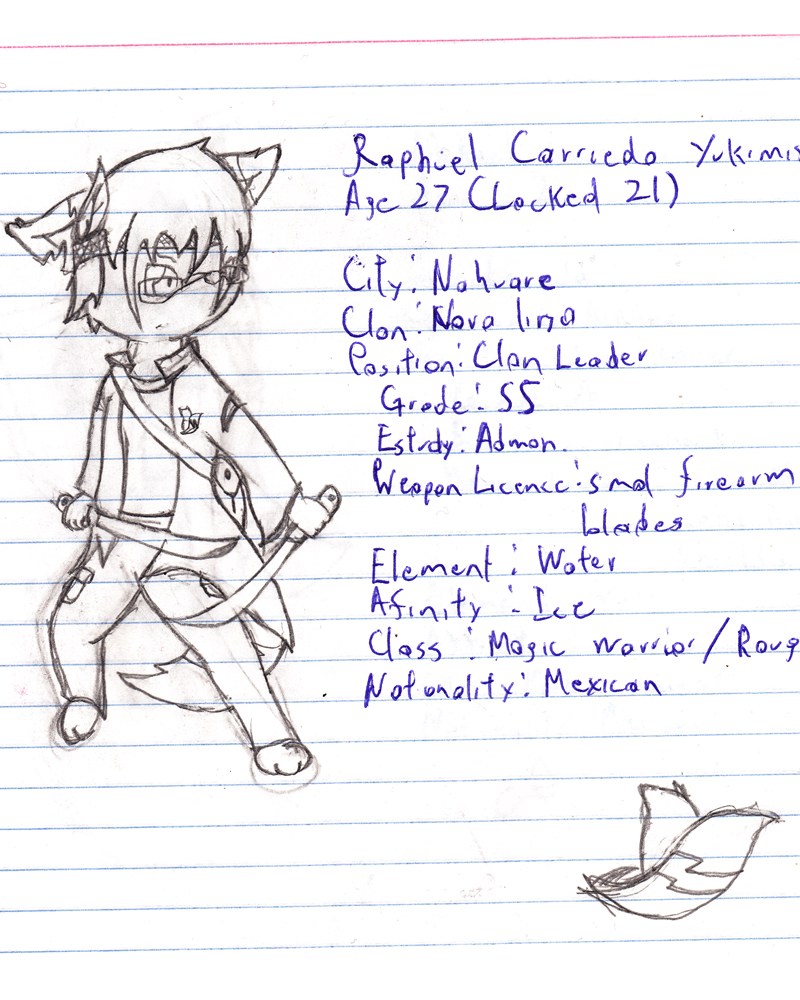 Raphiel Carriedo Yukimis
Age 27 (Locked 21)
City: Nohuare
Clan: Nova lira
Position: Clan Leader
Grade: SS
Estudy: Admon.
Weapon Licence: smal firearm
blades
Element: Water
Afinity: Ice
Class: Magic warrior/Roug
Nationality: Mexican